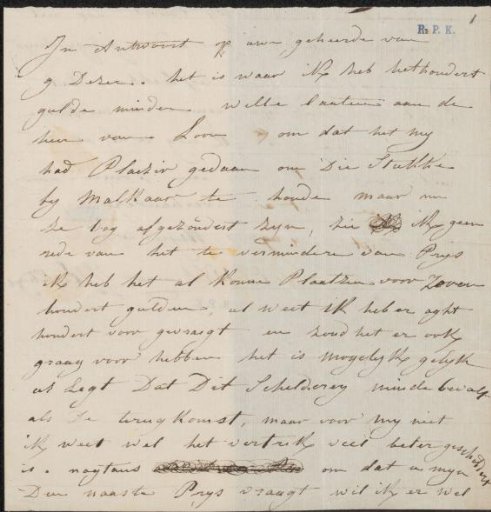 R. P. K.
1
In Antwoort op uwe geheerde van
9 Dezer.. het is waar ik heb hethondert
gulde minder wille laaten aan de
heer van Loon om dat het my
had Plaizir gedaan om Die Stukke
by Malkaar te houde maar nu
ze tog afgezondert zyn, zie ik geen
rede van het te verminderen van Prys
ik heb het al konne Plaatzen voor Zeven
hondert gulden, al weet ik heb er aght
hondert voor gevraagt en zoud het er ook
graag voor hebben het is mogelyk gelyk
u Zegt Dat Dit Schilderey minde bevalt
als de terugkomst, maar voor my niet
ik weet wel het vertrek veel beter geschildert
is. nogtans om dat u myn
Den naaste Prys vraagt wil ik er wel